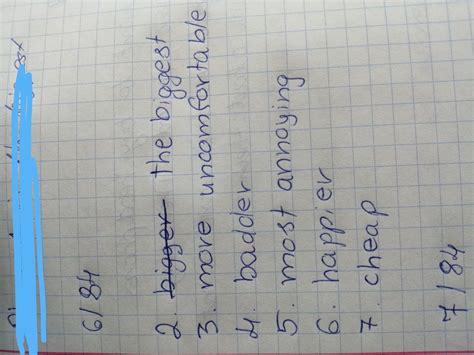 6/84
2. bigger the biggest
3. more uncomfortable
4. badder
5. most annoying
6. happier
7. cheap
7/84